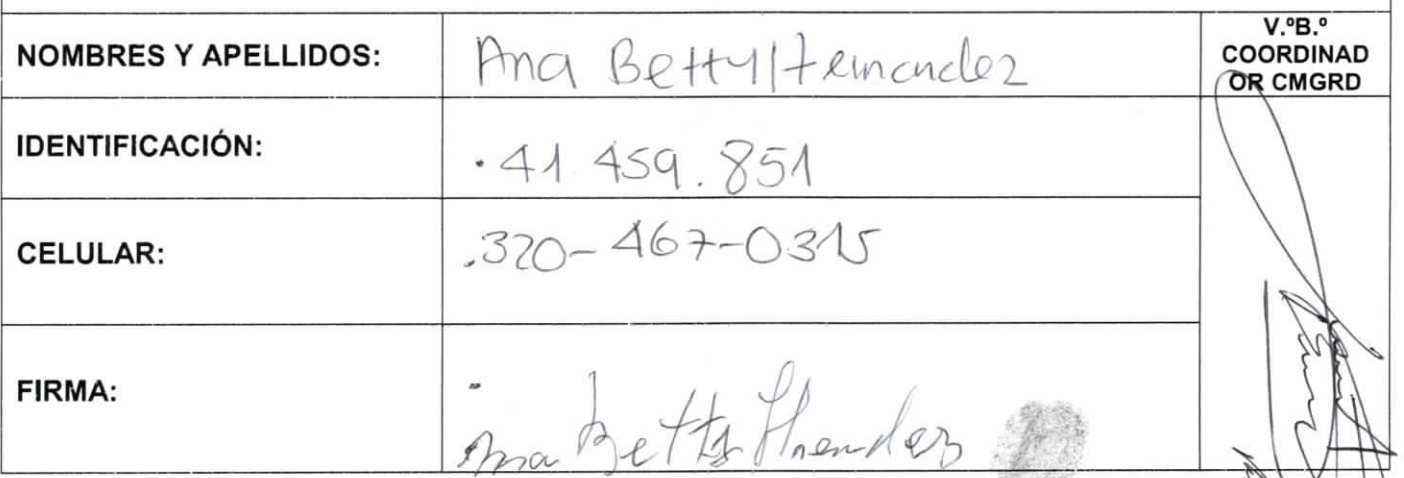 NOMBRES Y APELLIDOS: Ana Betty Hernandez
V.ºB.º
COORDINAD
OR CMGRD
IDENTIFICACIÓN: .41.459.851
CELULAR: .320-467-0315
FIRMA: Ana Betty Hernandez